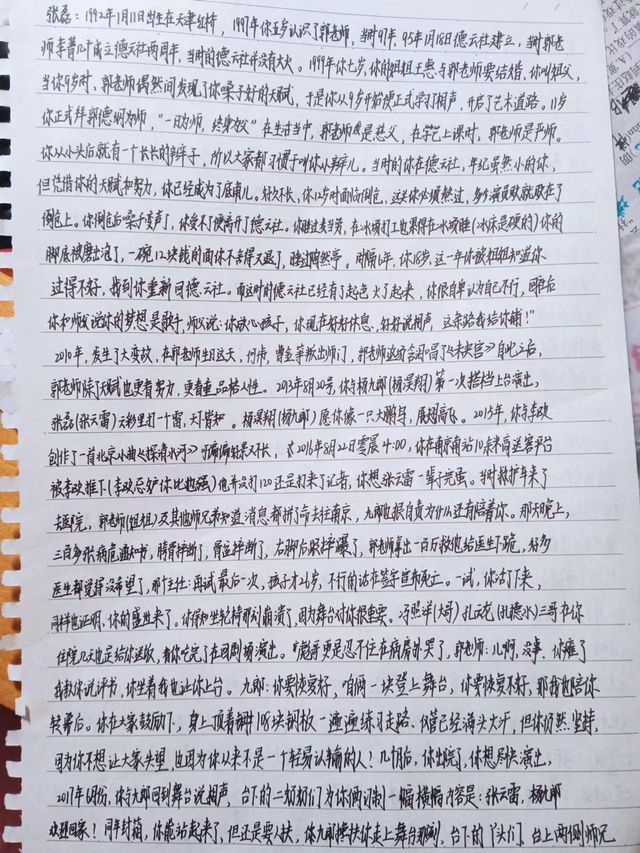 张磊：1992年1月11日出生在天津红桥，1997年你五岁认识了郭老师，当时97年，95年1月18日德云社建立，当时郭老
师李菁几个成立德云社两周年，当时的德云社并没有大火。1999年你七岁，你的姐姐王惠与郭老师要结婚，你叫祖父，
当你9岁时，郭老师偶然间发现了你嗓子好的天赋，于是你从9岁开始便正式学打相声，开启了艺术道路。11岁
你正式拜郭德纲为师，“一日为师，终身为父”在生活当中，郭老师是慈父，在学艺上课时，郭老师是严师。
你从小头后就有一个长长的辫子，所以大家都习惯于叫你小辫儿。当时的你在德云社，年纪虽然小的你，
但凭借你的天赋和努力，你已经成为了底角儿。好久不长，你12岁时面临倒仓，这关你必须熬过，多少演员败就败在了
倒仓上。你倒仓后嗓子变声了，你受不了便离开了德云社。你睡过大当劳，在冰场打工也累得在冰场睡（冰床是硬的）你的
脚底被磨出泡了，一碗12块钱的面你不舍得又退了，睡过陶然亭。时隔6年，你18岁，这一年你被姐姐知道你
过得不好，找到你重新回德云社。而这时的德云社已经有了起色火了起来，你很自卑认为自己不行，回来后
你和师父说你的梦想是歌手，师父说：你放心孩子，你现在好好休息，好好说相声，这条路我给你铺！”
2010年，发生了大变故，在郭老师生日这天，何伟，曹金等叛出师门，郭老师返场含泪唱了《未央宫》自此之后，
郭老师除了天赋也更看努力，更看重品格人性。2013年8月20号，你与杨九郎（杨淏翔）第一次搭档上台演出，
张磊（张云雷）云彩里打一个雷，天下皆知。杨淏翔（杨九郎）愿你像一只大鹏鸟，展翅高飞。2015年，你与李欧
创作了一首北京小曲《探清水河》可偏偏好景不长，2016年8月22日零晨4:00，你在南京南站10余米高送客平台
被李欧推下（李欧忌妒你比他强）他并没打120还是打来了记者，你想张云雷一辈子完蛋。当时救护车来了
去医院，郭老师（姐姐）及其他师兄弟知道消息都拼了命去往南京，九郎也很自责为什么还有陪着你。那天晚上，
三百多张病危通知书，胯骨摔断了，骨盆摔断了，右脚后跟摔爆了，郭老师拿出一百万救他给医生下跪，好多
医生都觉得没希望了，那个主任：再试最后一次，孩子才24岁，不行的话在签字宣布死亡。一试，你活了下来，
同样也证明，你的盛世来了。你得知坐轮椅那刻崩溃了，因为舞台对你很重要。冯照洋（大哥）孔云龙（孔德水）三哥在你
住院几天也是给你送饭，看你吃完了在回剧场演出。“彪哥更是忍不住在病房外哭了，郭老师：儿啊，没事，你瘫了
我教你说评书，你坐着我也让你上台。九郎：你要恢复好，咱俩一块登上舞台，你要恢复不好，那我也陪你
转幕后。你在大家鼓励下，身上顶着108块钢板一遍遍练习走路，仅管已经满头大汗，但你仍然坚持，
因为你不想让大家失望，也因为你从来不是一个轻易认输的人！几个月后，你出院了，你想尽快演出，
2017年6月份，你与九郎回到舞台说相声，台下的二奶奶们为你俩订制一幅横幅内容是：张云雷，杨九郎
欢迎回家！同年封箱，你能站起来了，但还是要人扶，你九郎搀扶你走上舞台那刻，台下的丫头们，台上两侧师兄